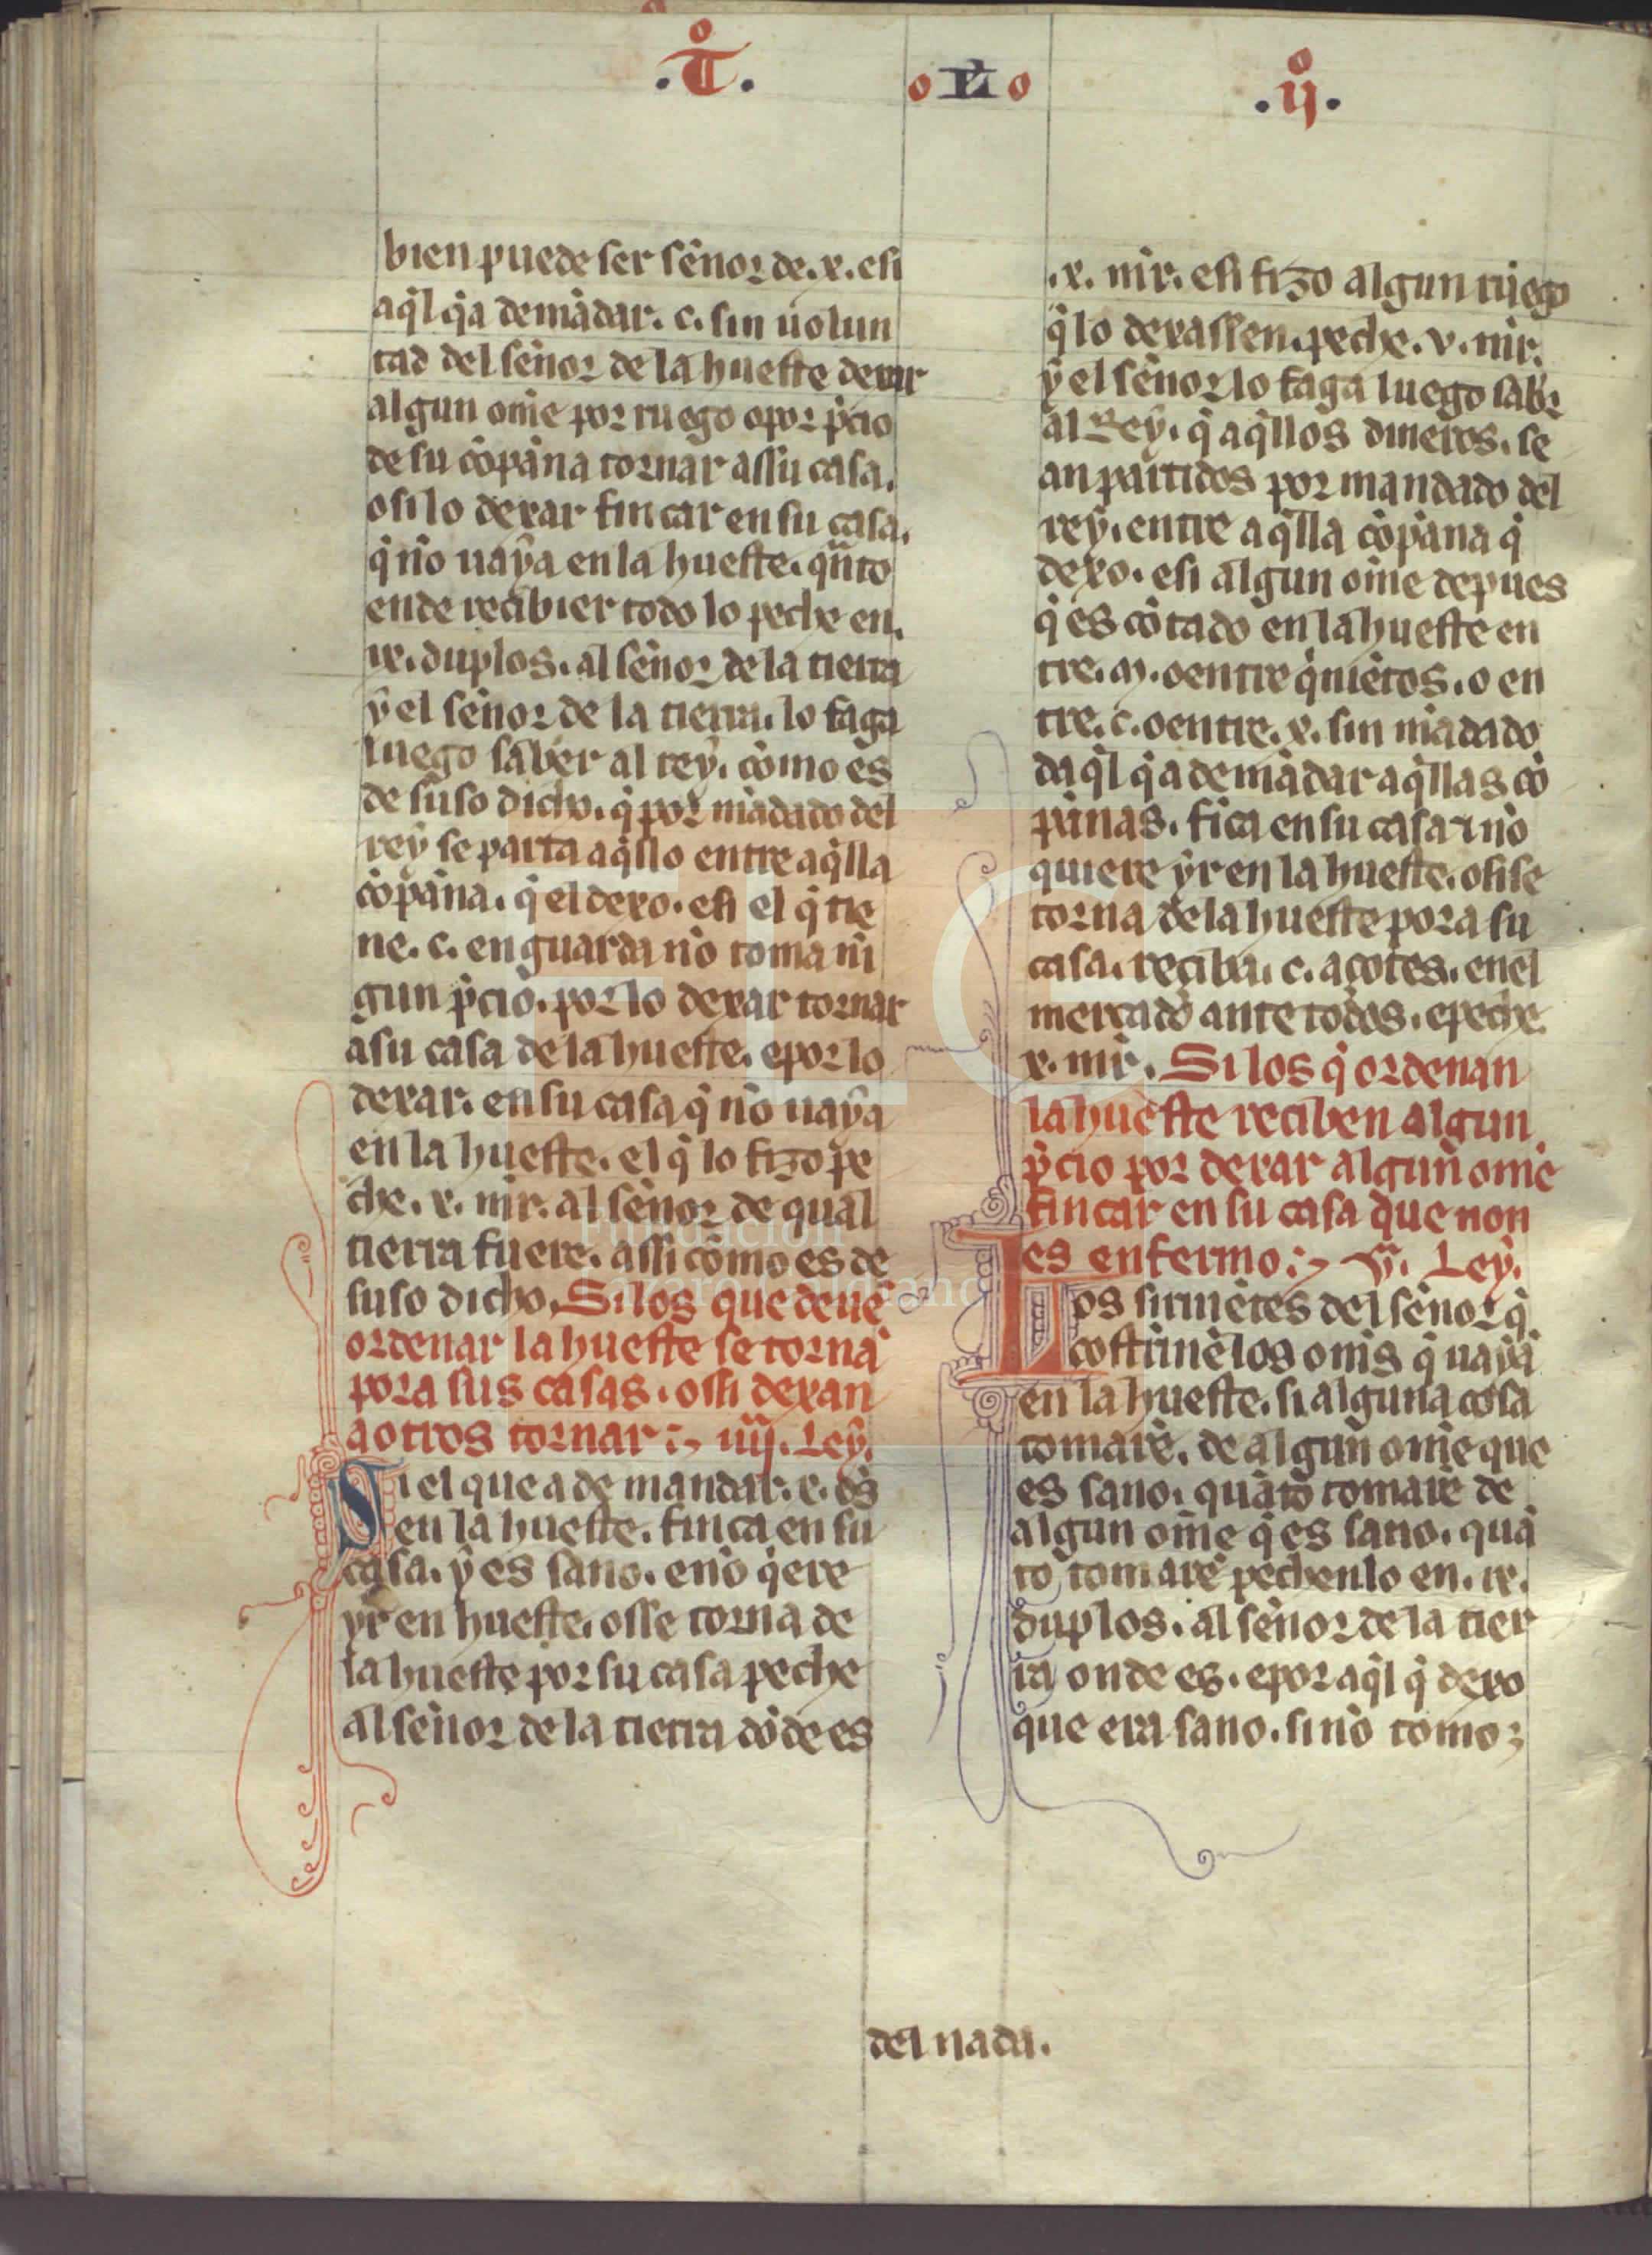 .T̊. o L̊ o .ij̊.
bien puede ser señor de .x. e si
aq̃l q̃ a de mãdar .c. sin uolun
tad del señor de la hueste dexar
algun ome por ruego o por p̃cio
de su cõpaña tornar assu casa.
o si lo dexar fincar en su casa.
q̃ nõ uaya en la hueste. quãto
ende recibier todo lo peche en.
ix. duplos. al señor de la tierra
y el señor de la tierra. lo faga
luego saber al rey. cõmo es
de suso dicho. q̃ por mãdado del
rey se parta aq̃llo entre aq̃lla
cõpaña. q̃ el dexo. e si el q̃ tie
ne .c. en guarda nõ toma nĩ
gun p̃cio. por lo dexar tornar
a su casa de la hueste. e por lo
dexar. en su casa q̃ nõ uaya
en la hueste. el q̃ lo fizo pe
che .x. mr̃. al señor de qual
tierra fuere. assi cõmo es de
suso dicho. Si los que deuẽ
ordenar la hueste se tornã
pora sus casas. o si dexan
a otros tornar :~ iiij. Ley.
Si el que a de mandar .x. õs
en la hueste. finca en su
casa. y es sano. e nõ q̃ere
yr en hueste. o sse torna de
la hueste por su casa peche
al señor de la tierra dõde es
.x. mr̃. e si fizo algun ruego
q̃ lo dexassen. peche .v. mr̃.
y el señor lo faga luego sab̃
al Rey. q̃ aq̃llos dineros. se
an partidos por mandado del
rey. entre aq̃lla cõpaña q̃
dexo. e si algun ome depues
q̃ es cõtado en la hueste en
tre .M. o entre q̃niẽtos. o en
tre .c. o entre .x. sin mãdado
daq̃l q̃ a de mãdar aq̃llas cõ
pañas. fica en su casa ⁊ nõ
quiere yr en la hueste. o si se
torna de la hueste pora su
casa. reciba .c. açotes. en el
mercado ante todos. e peche
x. mr̃. Si los q̃ ordenan
la hueste reciben algun
p̃cio por dexar algun ome
fincar en su casa que non
es enfermo :~ v. Ley.
Los siruiẽtes del señor q̃
costrinẽ los oms̃ q̃ uayã
en la hueste. si alguna cosa
tomarẽ. de algun ome que
es sano. quãto tomarẽ de
algun ome q̃ es sano. quã
to tomarẽ pechenlo en .ix.
duplos. al señor de la tier
ra onde es. e por aq̃l q̃ dexo
que era sano. si nõ tomo;
del nada.
Fundación
Lázaro Galdiano